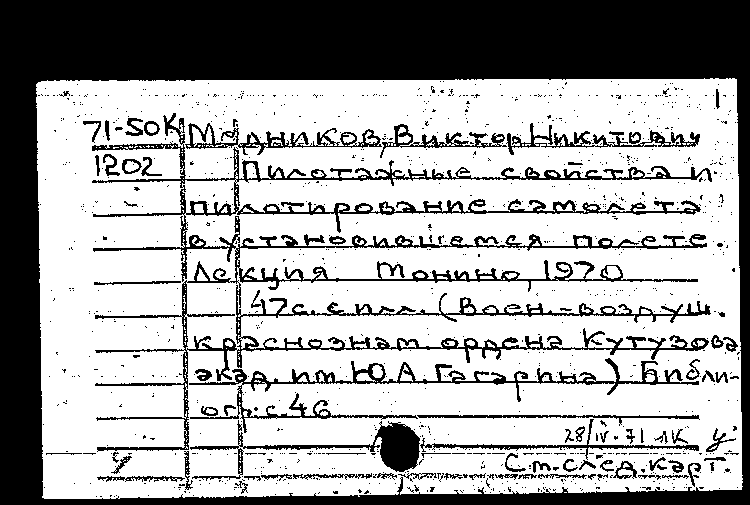 1
71-50К Медников, Виктор Никитович
1202 Пилотажные свойства и
пилотирование самолета
в установившемся полете.
Лекция. Монино, 1970
47с. с илл. (Воен.-воздуш.
краснознам. ордена Кутузова
акад. им. Ю.А. Гагарина) Библи-
огр: с. 46
28/IV-71 1К У
У
См. след. карт.